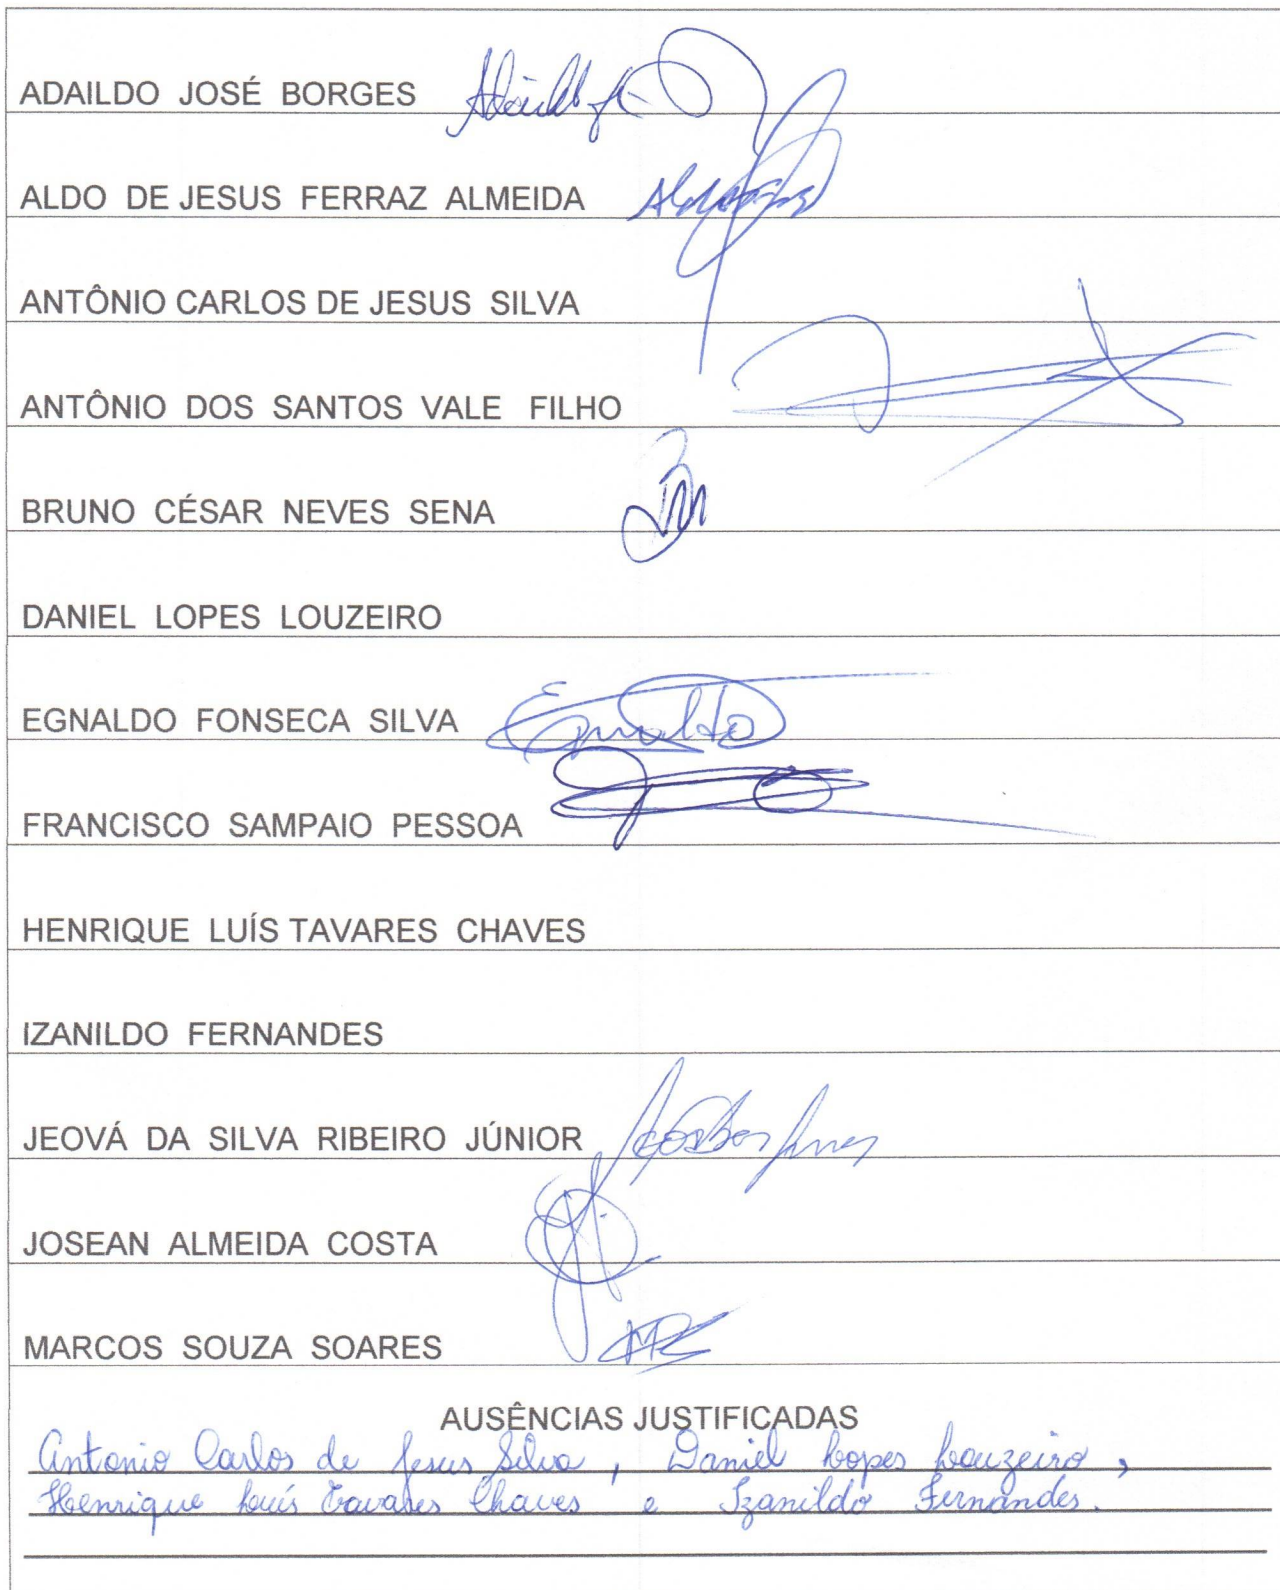 ADAILDO JOSÉ BORGES
ALDO DE JESUS FERRAZ ALMEIDA
ANTÔNIO CARLOS DE JESUS SILVA
ANTÔNIO DOS SANTOS VALE FILHO
BRUNO CÉSAR NEVES SENA
DANIEL LOPES LOUZEIRO
EGNALDO FONSECA SILVA
FRANCISCO SAMPAIO PESSOA
HENRIQUE LUÍS TAVARES CHAVES
IZANILDO FERNANDES
JEOVÁ DA SILVA RIBEIRO JÚNIOR
JOSEAN ALMEIDA COSTA
MARCOS SOUZA SOARES
AUSÊNCIAS JUSTIFICADAS
Antonio Carlos de Jesus Silva, Daniel Lopes Louzeiro,
Henrique Luís Tavares Chaves e Izanildo Fernandes.